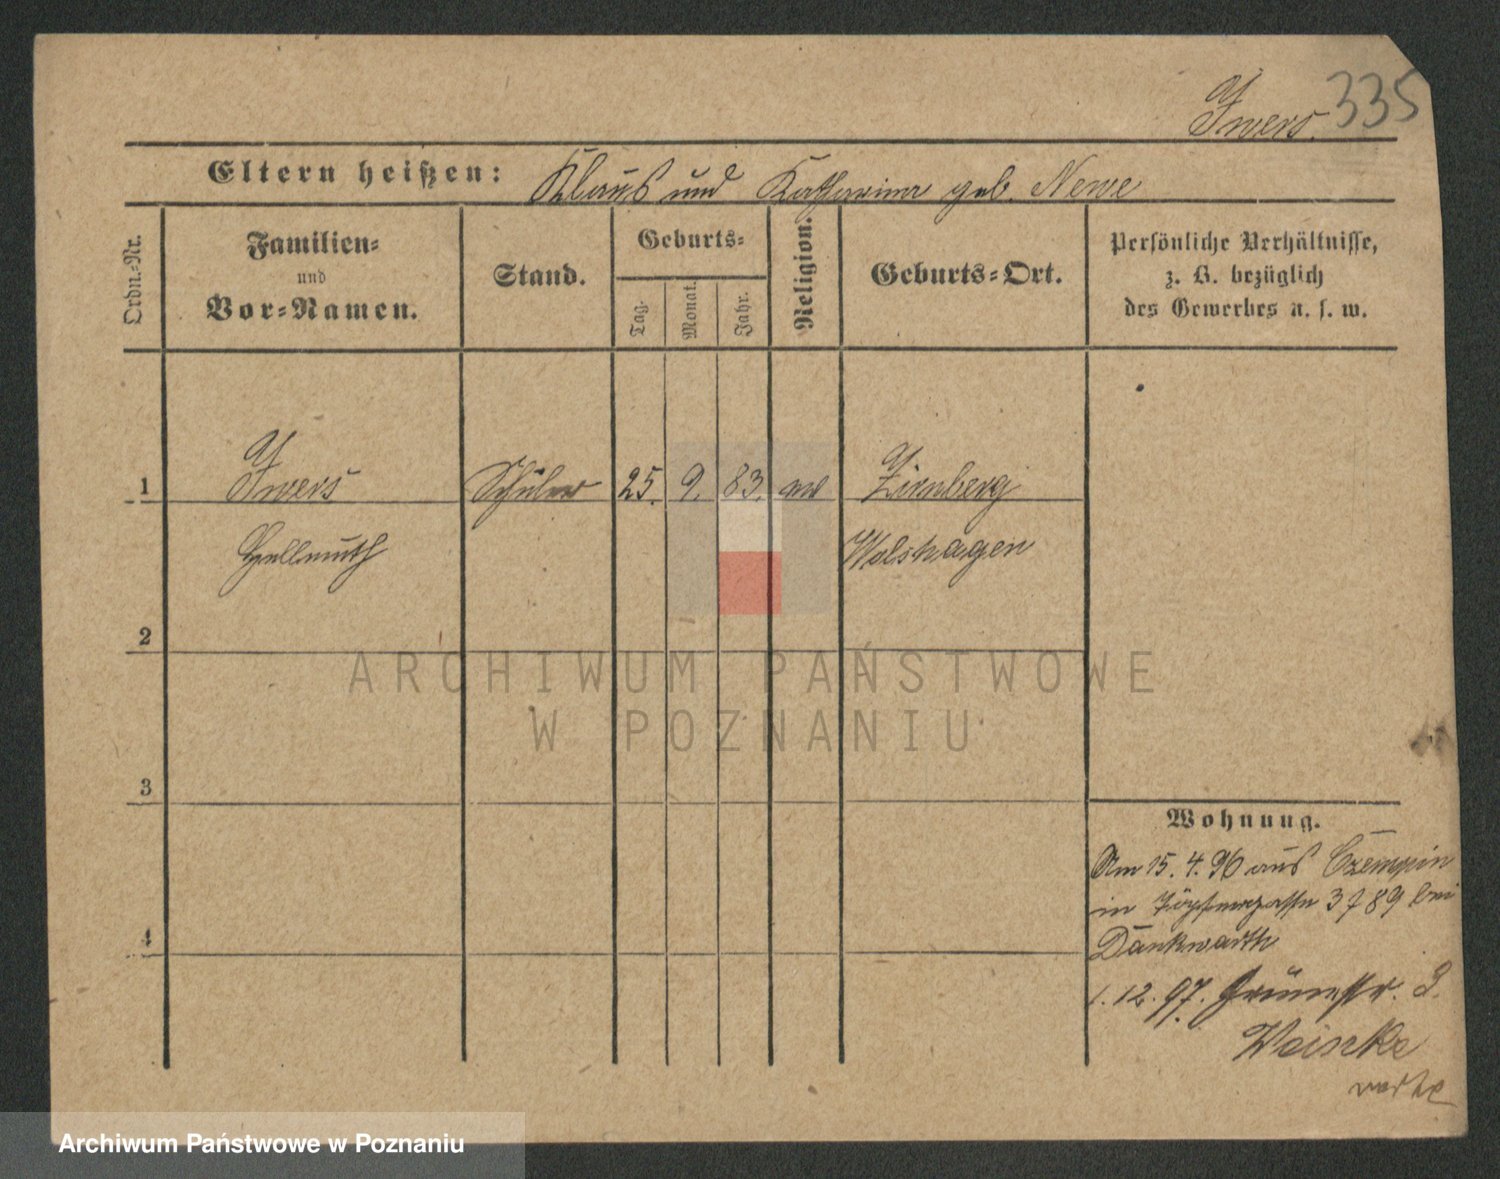 Iwers.
335
Eltern heißen: Klaus und Katharina geb. Newe
Ordn.-Nr.
Familien-
und
Vor-Namen.
Stand.
Geburts-
Tag.
Monat.
Jahr.
Religion.
Geburts-Ort.
Persönliche Verhältnisse,
z. B. bezüglich
des Gewerbes u. s. w.
1 Iwers Schüler 25. 9. 83.
Hellmuth Wolshagen
2
3
4
Wohnung.
Am 15. 4. 96 aus Czempin
in Töpfergasse 3 7 89 bei
Dankwarth
1. 12. 97. Grünestr. 3.
ARCHIWUM PAŃSTWOWE
W POZNANIU
Archiwum Państwowe w Poznaniu